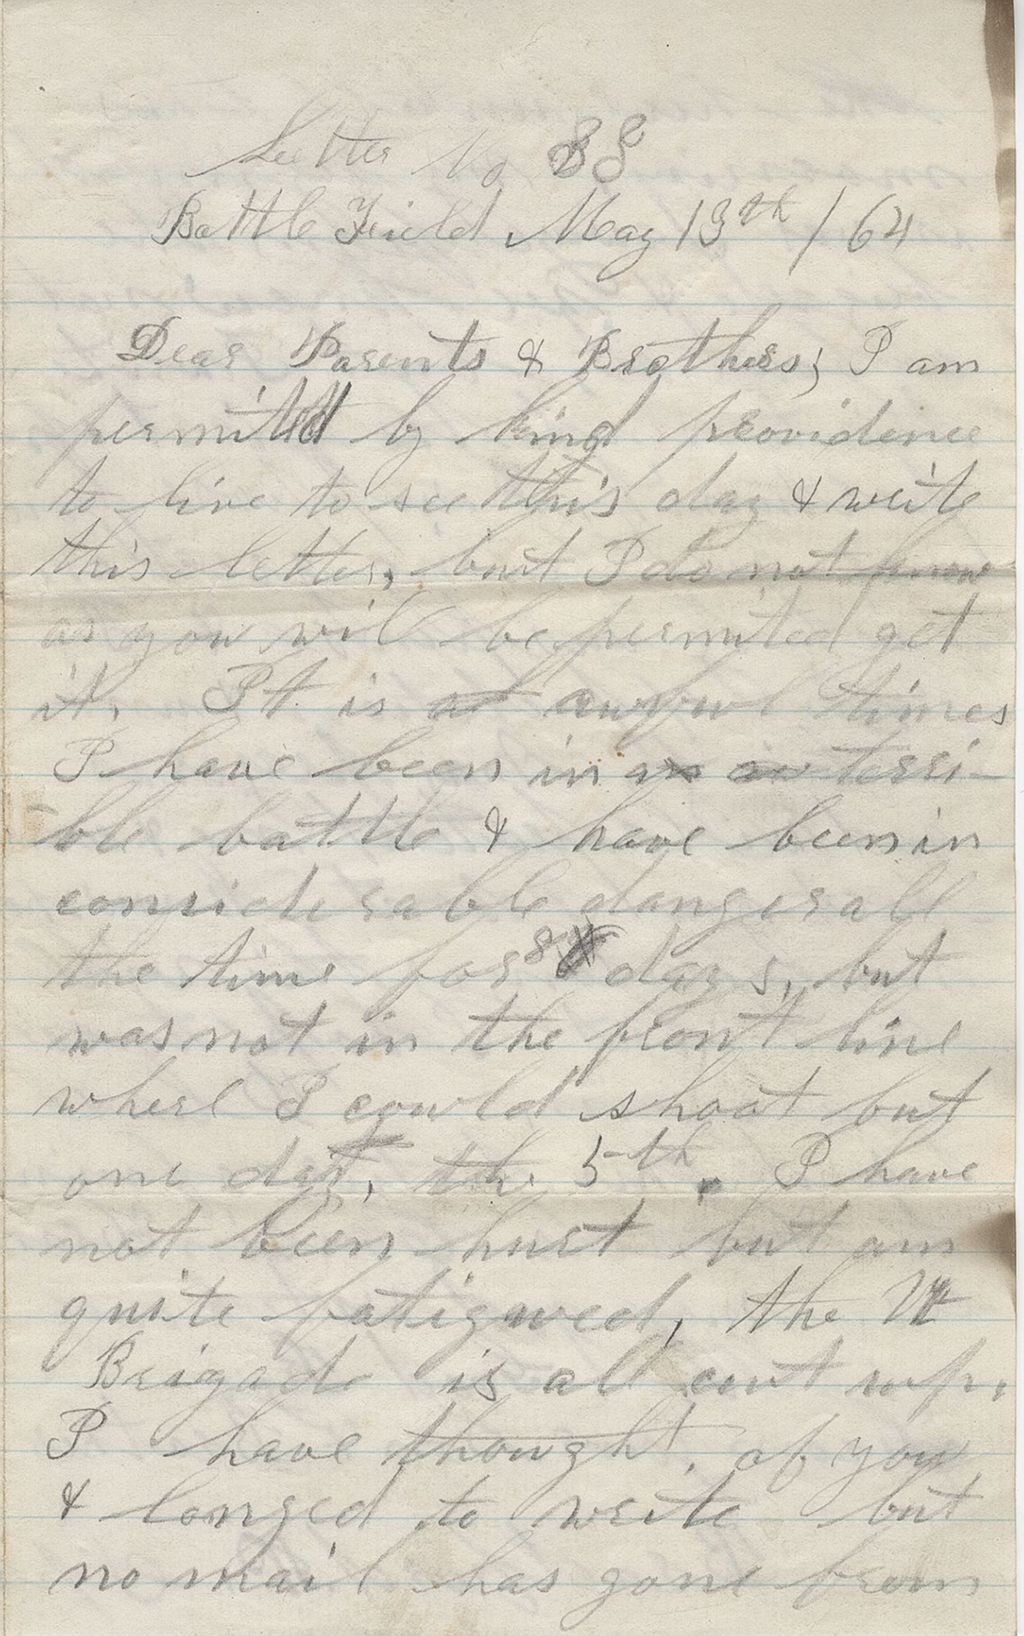 Letter No 88
Battle Field, May 13th /64
Dear Parents & Brothers; I am
permitted by kind providence
to live to see this day & write
this letter, but I do not know
as you wil be permited get
it. It is a awful times
I have been in an aw terri-
ble battle & have been in
considerable danger all
the time for 8 days, but
was not in the front line
where I could shoot but
one day, the 5th. I have
not been hurt but am
quite fatigued, the Vt
Brigade is all cut up.
I have thought of you
& longed to write but
no mail has gone from